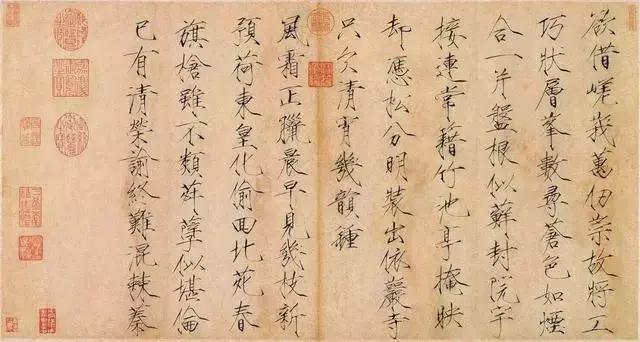 欲借嵯峩萬仞崇故將工
巧狀層峯數尋蒼色如煙
合一片盤根似蘚封院宇
接連常藉竹池亭掩映
却憑松分明裝出依巖寺
只欠清宵幾韻鍾
風霜正臘晨早見幾枝新
預荷東皇化偷回北苑春
旗槍雖不類荈孽似堪倫
已有清榮諭終難混棘蓁